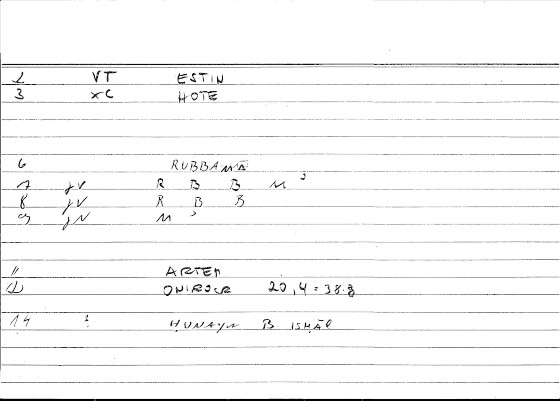 1 VT ESTIN
3 XC HOTE
6 RUBBAMĀ
7 jV R B B M ʾ
8 jV R B B
9 jN M ʾ
11 ARTEM
ONIROCR 20,4 = 38.8
14 HUNAYN B. ISHĀQ